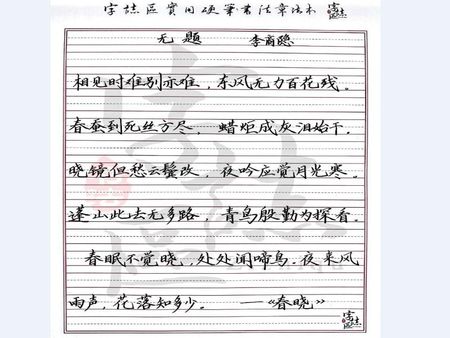 字誌区實用硬筆書法章法本
无题 李商隐
相见时难别亦难,东风无力百花残。
春蚕到死丝方尽,蜡炬成灰泪始干。
晓镜但愁云鬓改,夜吟应觉月光寒。
蓬山此去无多路,青鸟殷勤为探看。
春眠不觉晓,处处闻啼鸟。夜来风
雨声,花落知多少。——《春晓》